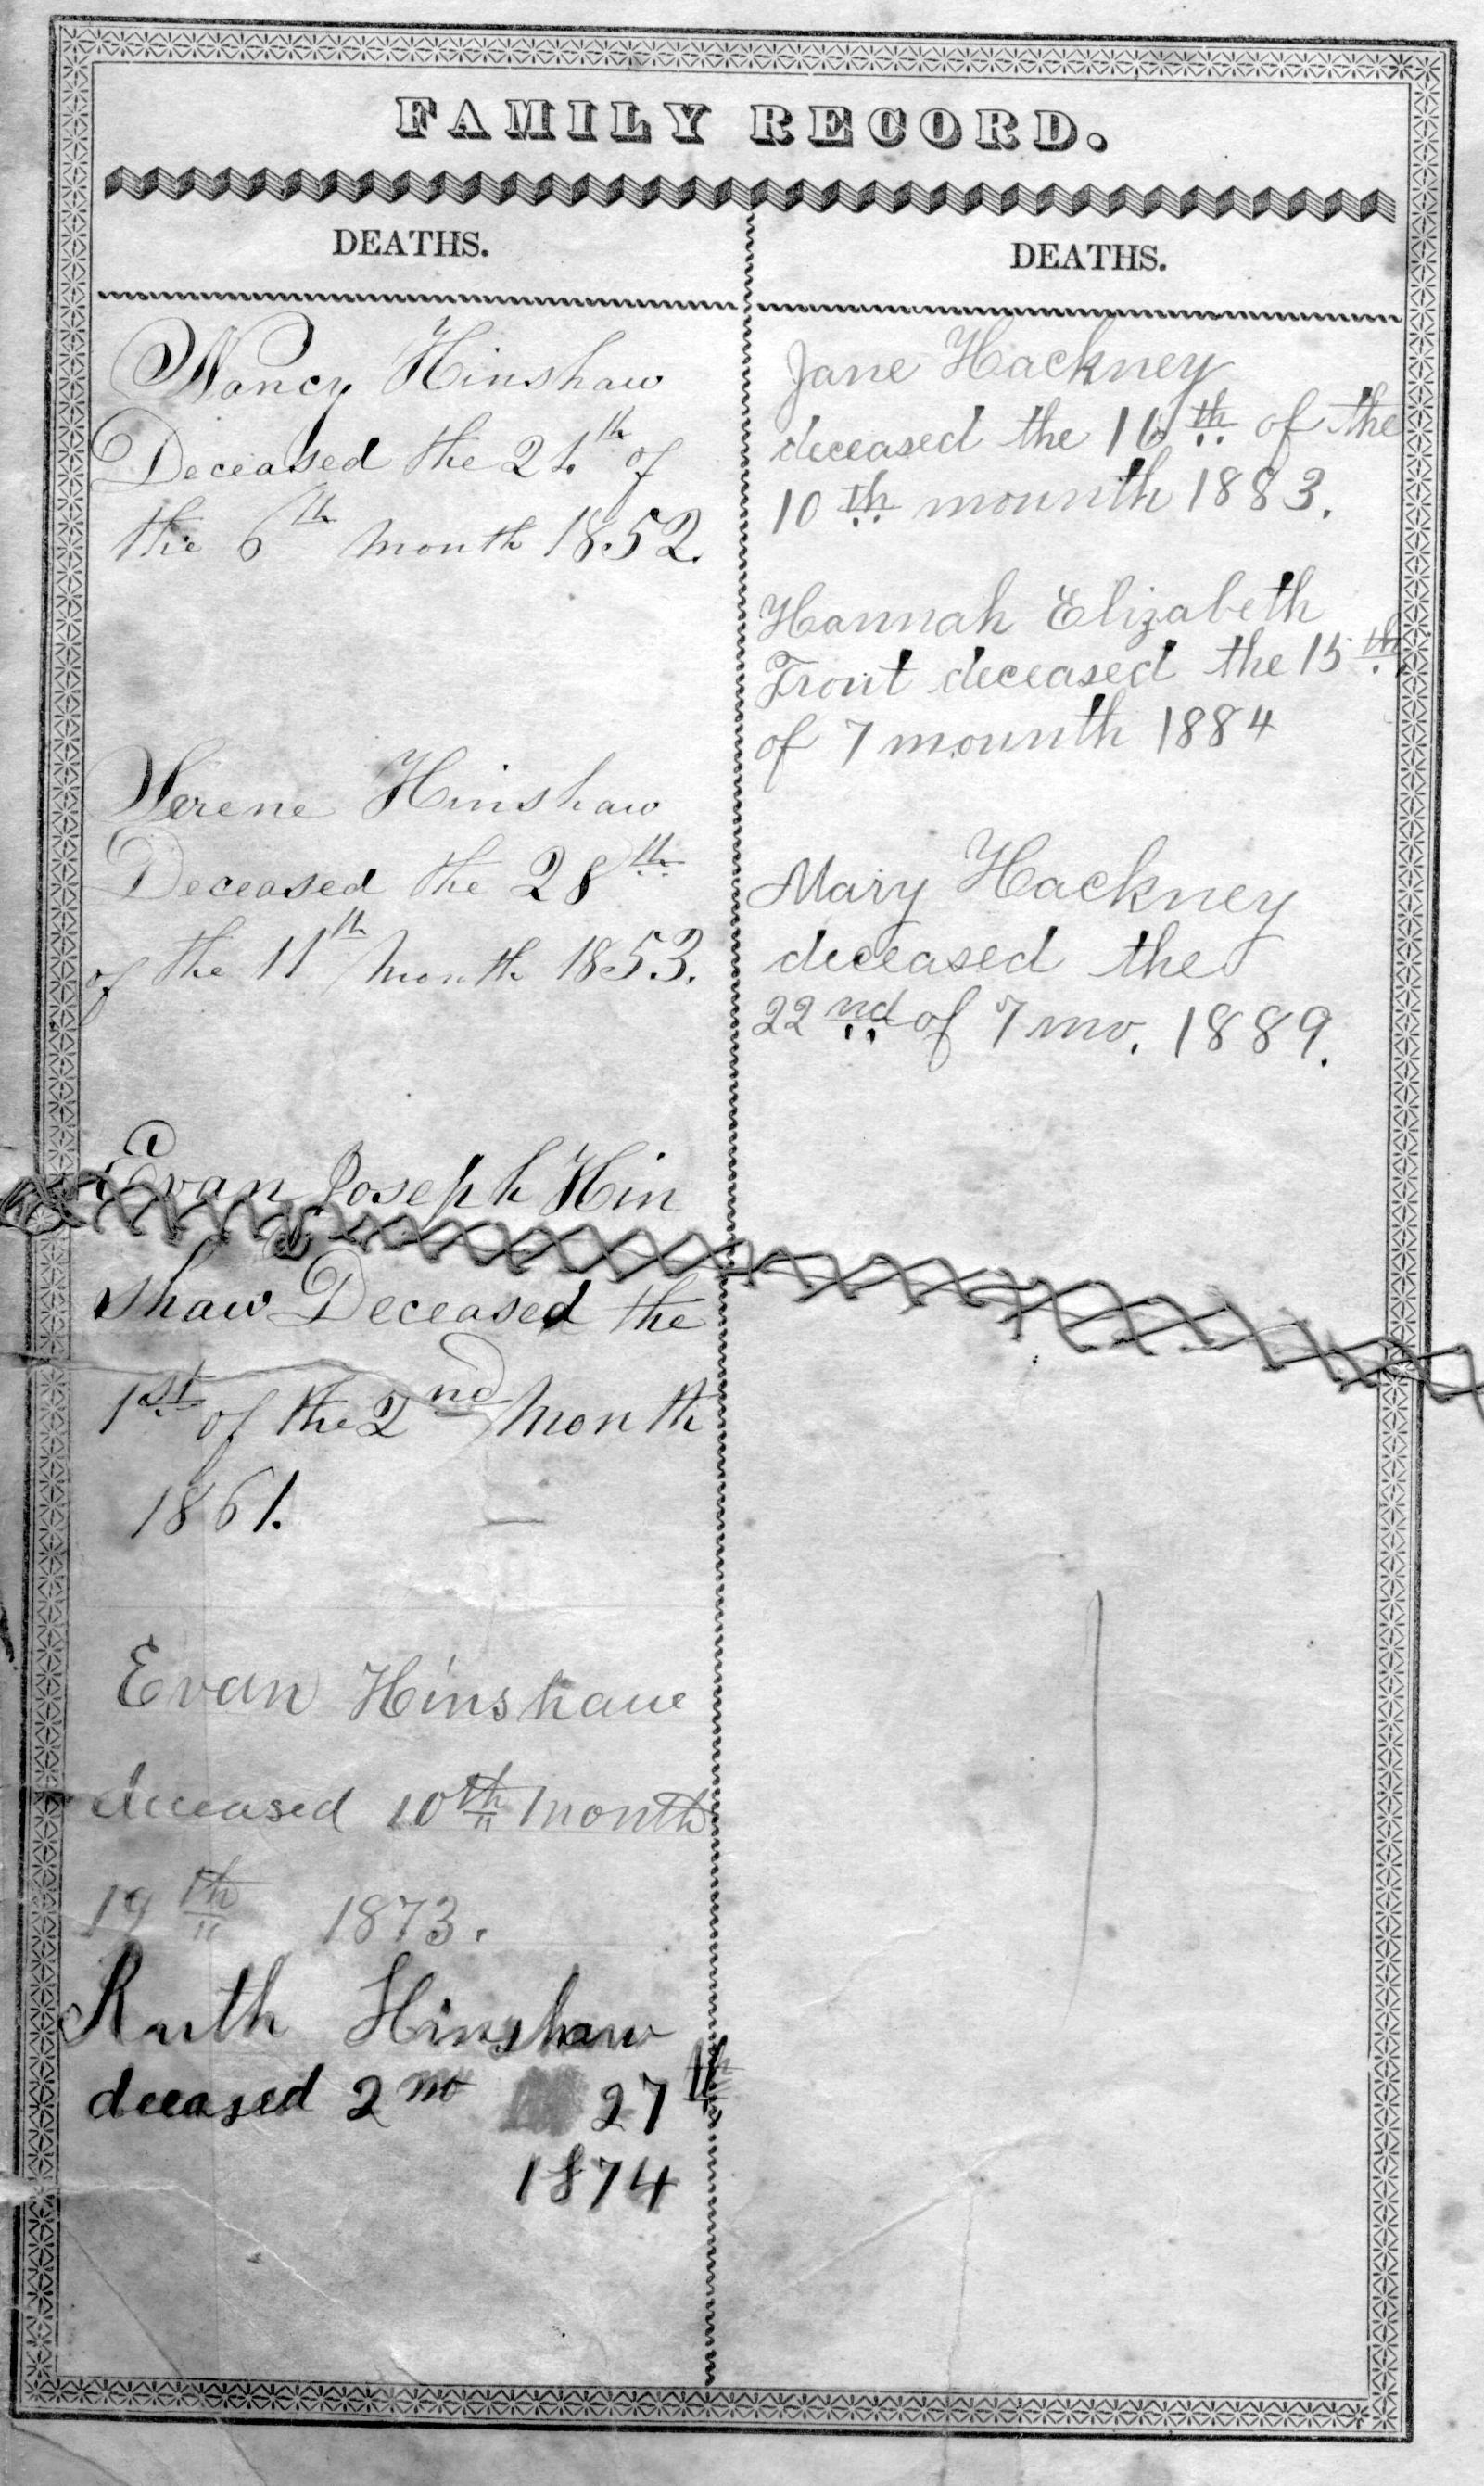 FAMILY RECORD.
DEATHS.
Nancy Hinshaw
Deceased the 24th of
the 6th month 1852.
Serene Hinshaw
Deceased the 28th
of the 11th month 1853.
Evan Joseph Hin
shaw Deceased the
1st of the 2nd month
1861.
Evan Hinshaw
deceased 10th month
19th 1873.
Ruth Hinshaw
deceased 2 mo 27th
1874
DEATHS.
Jane Hackney
deceased the 16th of the
10th mounth 1883.
Hannah Elizabeth
Trout deceased the 15th
of 7 mounth 1884
Mary Hackney
deceased the
22nd of 7 mo. 1889.